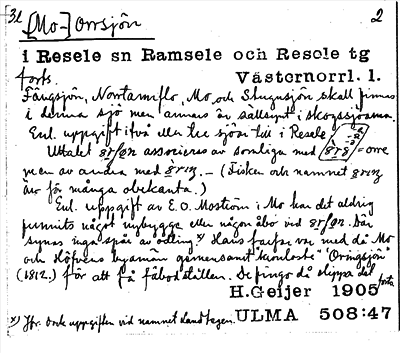 32 [Mo-] Orrsjön 2
i Resele sn Ramsele och Resele tg
forts. Västernorrl. l.
Fångsjön, Norrtannflo, Mo och Stugusjön skall finnas
i denna sjö men annars är sällsynt i skogssjöarna.
Enl. uppgift i två eller tre sjöar till i Resele
Uttalet associeras av somliga med = orre
men av andra med – (Fisken och namnet
är för många obekanta.)
Enl. uppgift av E. O. Moström i Mo har det aldrig
funnits något nybygge eller någon åbo vid Där
synas inga spår av odling. x) Hans farfar var med då Mo
och Höfvens byamän gemensamt "Oringsjön"
(1812.) för att få fäbodställen. De fingo då slippa
H. Geijer 1905 forts
x) Jfr. dock uppgiften vid namnet ULMA 508:47